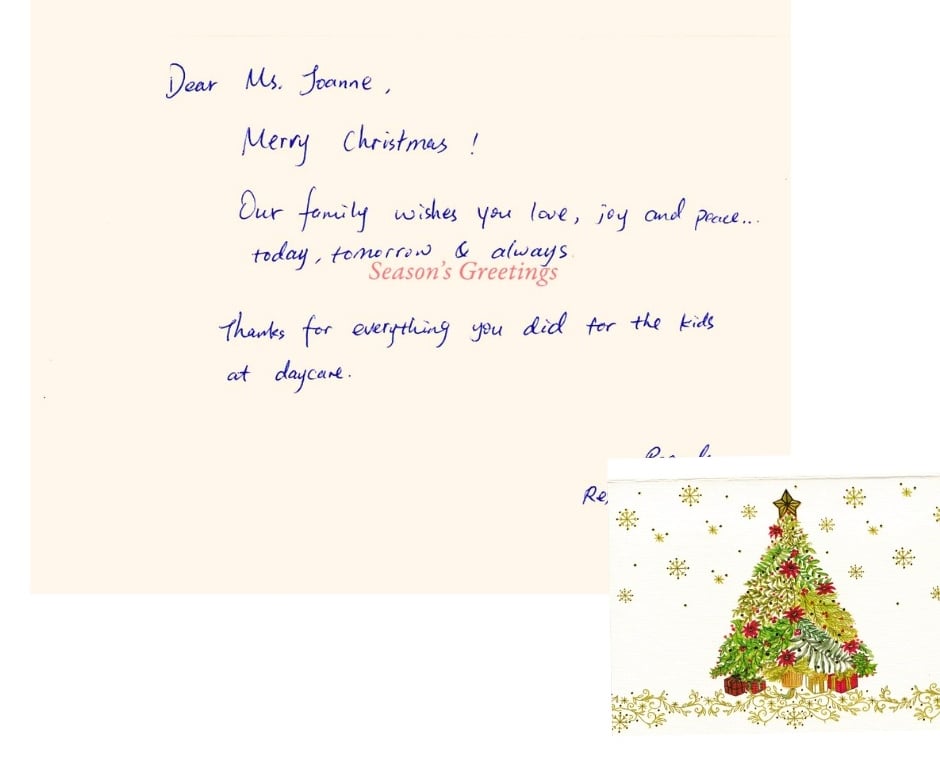 Dear Ms. Joanne,
Merry Christmas!
Our family wishes you love, joy and peace...
today, tomorrow & always.
Season's Greetings
Thanks for everything you did for the kids
at daycare.